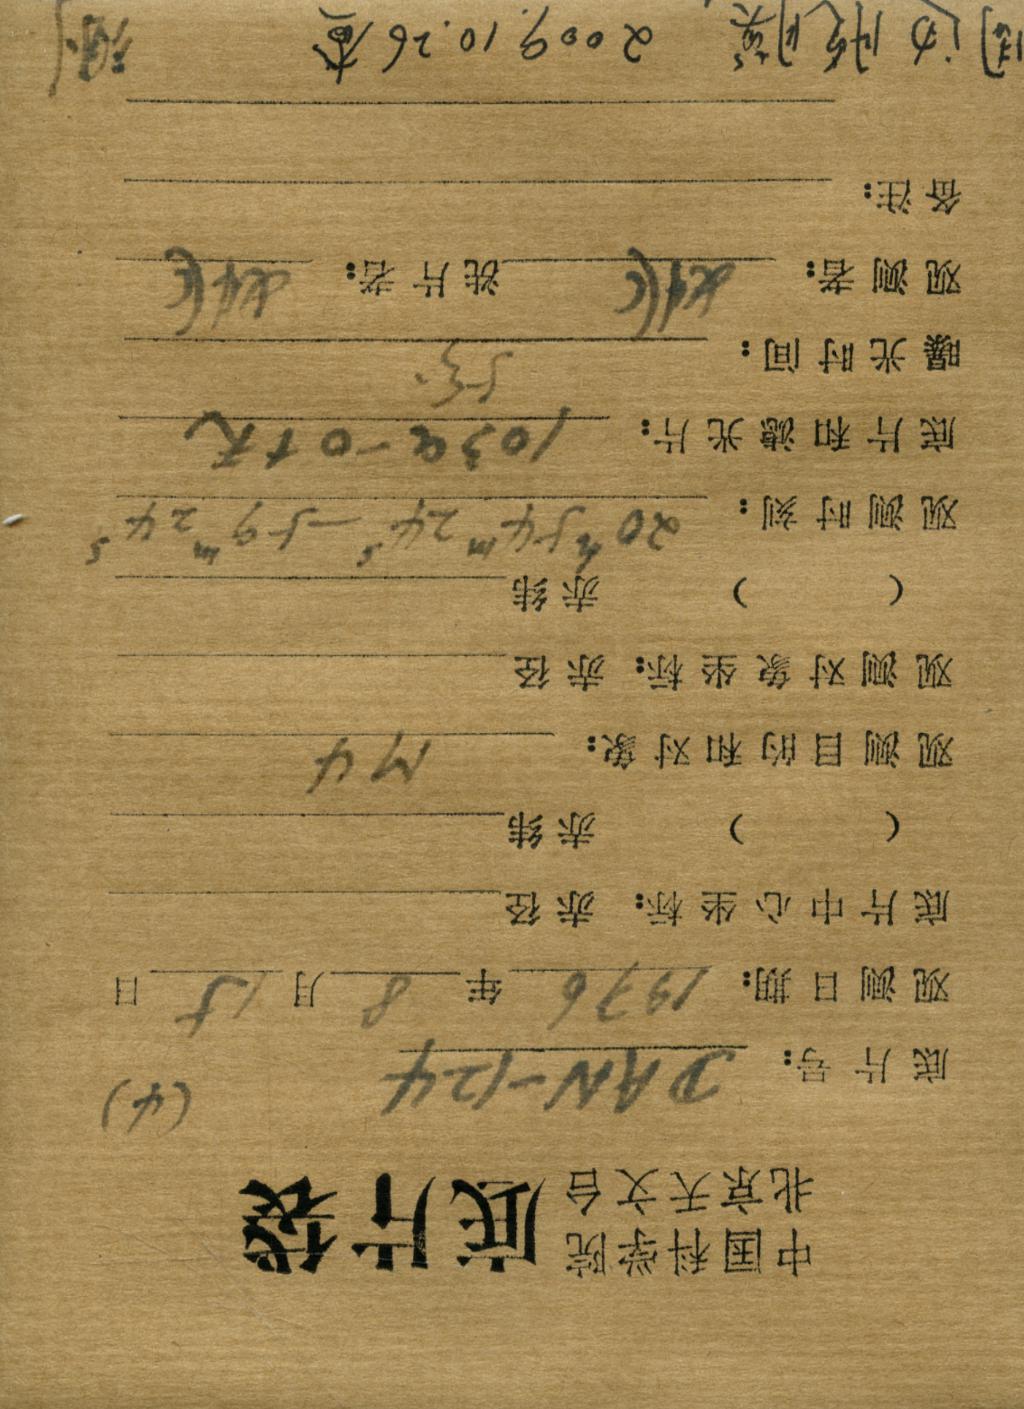 中国科学院
北京天文台
底片袋
(4)
底片号: DAN-124
观测日期: 1976年8月15日
底片中心坐标: 赤径
( ) 赤纬
观测目的和对象: M4
观测对象坐标: 赤径
( ) 赤纬
观测时刻: 20h54m24s—59m24s
底片和滤光片: 103a-O+无
曝光时间: 5分
观测者: 洗片者:
备注:
2009.10.26查